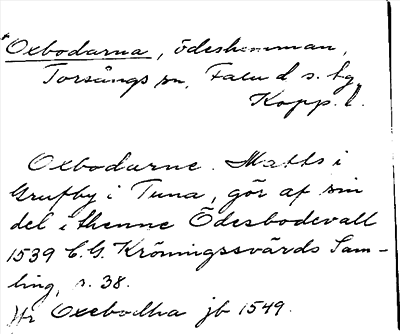 Oxbodarna, ödeshemman,
Torsångs sn, Falu d s. hg
Kopp. l.
Oxbodarne. Matts i
Grufby i Tuna, gör af sin
del i thenne Ödesbodevall
1539 C.G. Kröningssvärds Sam-
ling, s. 38.
Hr Oxebodha jb 1549.